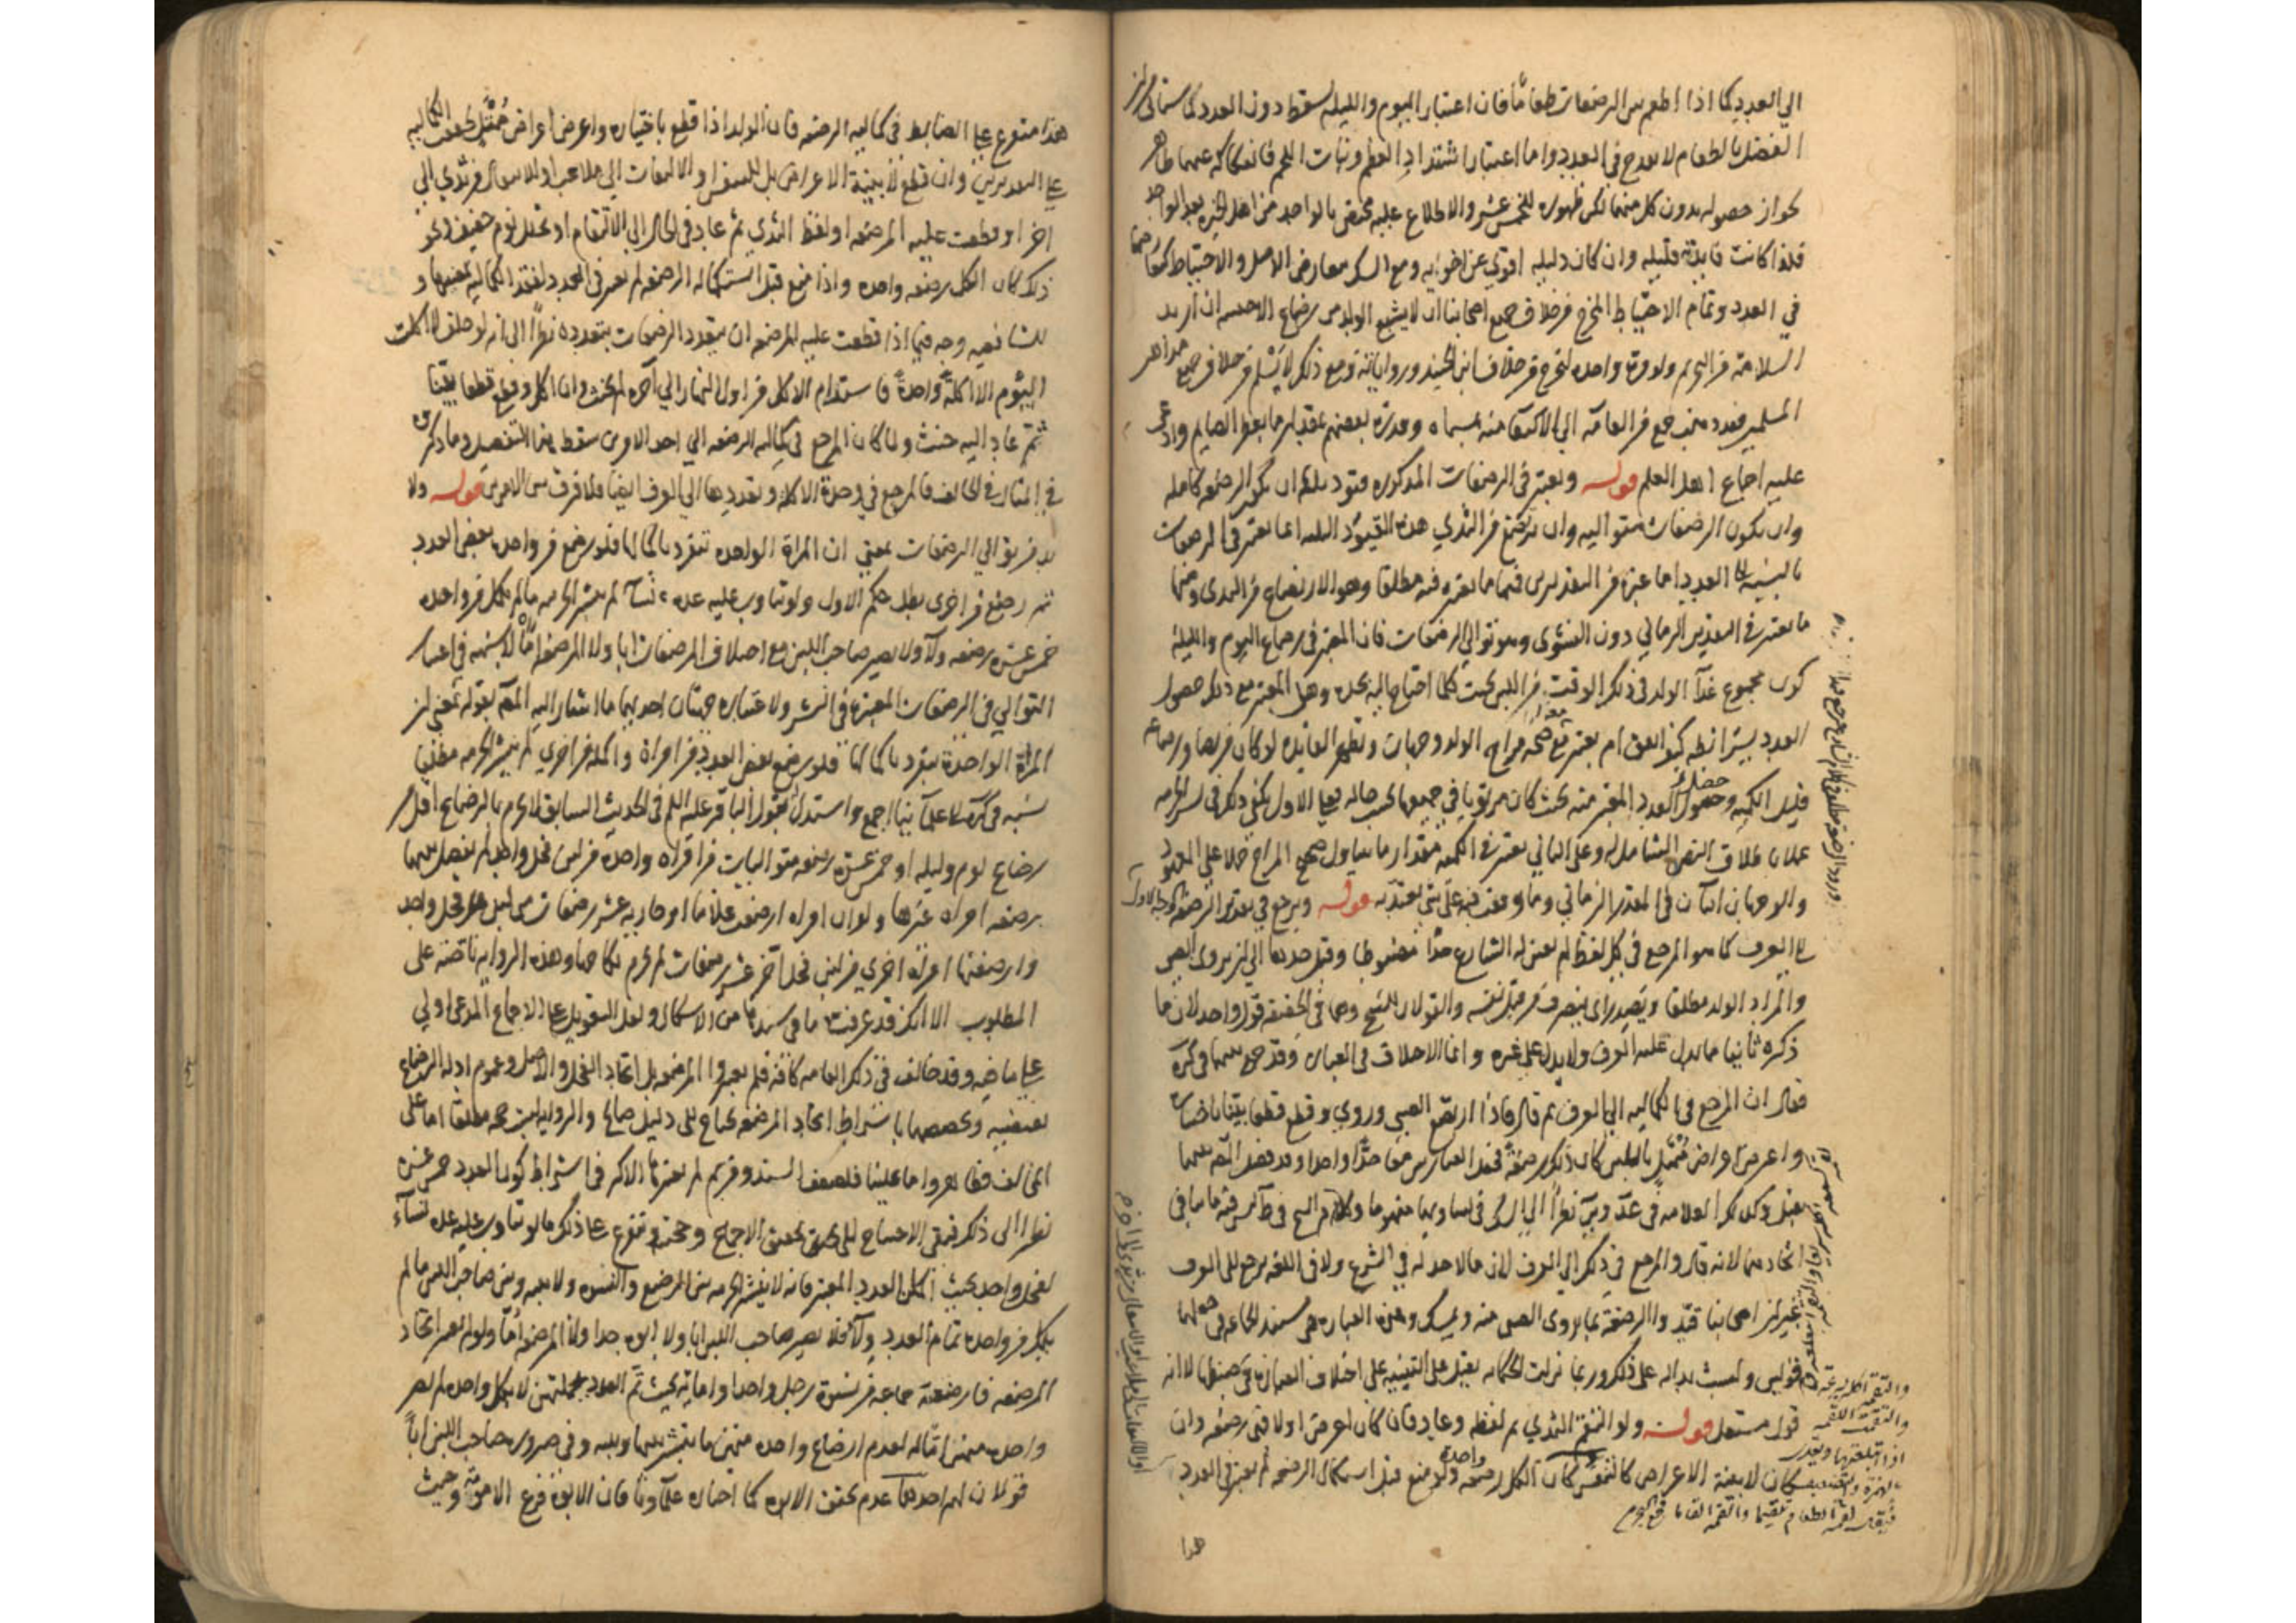 الي العدد كما اذا اطعم بين الرضعات طعاما فان اعتبار اليوم والليله يسقط دون العدد كما سياتي من ان
الفصل بالطعام لا يقدح في العدد واما اعتبار اشتداد العظم ونبات اللحم فانفكاكه عنهما ظاهر
لجواز حصوله بدون كل منهما لكن ظهوره للحس عسر والاطلاع عليه مختص بالواحد من اهل الخبره بعد الواحد
فلذا كانت فايدته قليله وان كان دليله اقوي من اخويه ومع الشك معارض الاصل والاحتياط كما
في العدد وتمام الاحتياط المخرج من خلاف جميع اصحابنا ان لا يشبع الولد من رضاع الاجنبيه ان اريد
السلامة من التحريم ولو مرة واحده ليخرج من خلاف ابن الجنيد ورواياته ومع ذلك لا يسلم من خلاف جميع مذاهب
المسلمين فقد ذهب جمع من العامة الي الاكتفا منه بمسماه وقدره بعضهم بقدر ما يفطر الصايم وادعي
عليه اجماع اهل العلم قوله ويعتبر في الرضعات المذكوره قيود ثلثه ان تكون الرضعه كامله
وان تكون الرضعات متواليه وان يرتضع من الثدي هذه القيود الثلثه انما تعتبر في الرضعات
بالنسبة الي العدد اما غيره من التقديرين فمنها ما يعتبر فيه مطلقا وهو الارتضاع من الثدي ومنها
ما يعتبر في التقدير الزماني دون النشوي وهو توالي الرضعات فان المعتبر في رضاع اليوم والليلة
كون مجموع غذآ الولد في ذلك الوقت من اللبن بحيث كلما احتاج اليه يجده وهل المعتبر مع ذلك حصول
العدد بشرائطه كيف اتفق ام يعتبر مع صحة مزاج الولد وجهان وتظهر الفايده لو كان مريضا ورضاعه
قليل الكميه وحصول العدد المعتبر منه بحيث كان مرتويا في جميعها بحسب حاله فعلي الاول يكفي ذلك في نشر الحرمه
عملا باطلاق النص الشامل له وعلي الثاني يعتبر في الكميه مقدار ما يتناول صحيح المزاج حملا علي المعهود
والوجهان اتيان في التقدير الزماني وما وقفت فيه علي شي يعتد به قوله ويرجع في تقدير الرضعه
الي العرف كما هو المرجع في كل لفظ لم يعين له الشارع حدا مضبوطا وقيل حدها الي ان يروي الصبي
والمراد الولد مطلقا ويصدر اي ينصرف من قبل نفسه والقولان للشيخ وهما في الحقيقة قول واحد لان ما
ذكره ثانيا مما يدل عليه العرف ولا يدل علي غيره وانما الاختلاف في العباره وقد جمع بينهما في كرة
فقال ان المرجع في الكماليه الي العرف ثم قال فاذا ارتضع الصبي وروي وقطع قطعا بينا باختياره
واعرض اعراض ممتلئ باللبن كان ذلك رضعة فجعل العبارتين معا حدا واحدا وقد فصل المص بينهما
بقيل وكذلك العلامه في عد وير نظرا الي الشك في تساويهما مفهوما وكلام الشيخ في ط ليس فيه ما ينافي
اتحادهما لانه قال والمرجع في ذلك الي العرف لان ما لا حد له في الشرع ولا في اللغه يرجع الي العرف
غير ان اصحابنا قيدوا الرضعة بما يروي الصبي منه ويمسك وهذه العباره هي مستند الجماعه في جعلها
قولين وليست بداله علي ذلك وربما نزلت الحكايه بقيل علي التنبيه علي اختلاف العباره في ضبطها لا انه
قول مستقل قوله ولو التقم الثدي ثم لفظه وعاد فان كان اعرض اولا فهي رضعه وان
كان لا بنية الاعراض كالنفس كان الكل رضعة واحدة ولو منع قبل استكمال الرضعه لم يعتبر في العدد
هذا
هذا متفرع علي الضابط في كماليه الرضعه فان الولد اذا قطع باختياره واعرض اعراض ممتلئ تحقق الكماليه
علي التقديرين وان قطع لا بنية الاعراض بل للتنفس او الالتفات الي ملاعب او الانتقال من ثدي الي
اخر او قطعت عليه المرضعه او لفظ الثدي ثم عاد في الحال الي الالتقام او تخلل نوم خفيف ونحو
ذلك كان الكل رضعه واحده واذا منع قبل استكماله الرضعه لم يعتبر في العدد لفقد الكماليه بمعنييها و
للشافعيه وجه فيما اذا قطعت عليه المرضعه ان يتعدد الرضعات بتعدده نظرا الي انه لو حلف لا اكلت
اليوم الا اكلة واحدة فاستدام الاكل من اول النهار الي آخره لم يحنث وان اكل وقطع قطعا بينا
ثم عاد اليه حنث ولما كان المرجع في كماليه الرضعه الي احد الامرين سقط هذا التفصيل وما ذكروه
في المثال في الحالف فالمرجع في وحدة الاكله وتعددها الي العرف ايضا فلا فرق بين الامرين قوله ولا
بد من توالي الرضعات بمعني ان المراة الواحده تنفرد باكمالها فلو رضع من واحدة بعض العدد
ثم رضع من اخري بطل حكم الاول ولو تناوب عليه عدة نسآ لم ينشر الحرمه ما لم يكمل من واحده
خمس عشرة رضعه ولآ ولا يصير صاحب اللبن مع اختلاف المرضعات ابا ولا المرضعه اما لا شبهه في اعتبار
التوالي في الرضعات المعتبرة في النشر ولاعتباره جهتان احديهما ما اشار اليه المص بقوله بمعني ان
المراة الواحدة تنفرد باكمالها فلو رضع بعض العدد من امراة واكمله من اخري لم ينشر الحرمه مطلقا
نسبه في كرة الي علمآئنا اجمع واستدل بقول الباقر عليه السلم في الحديث السابق لا يحرم بالرضاع اقل من
رضاع يوم وليله او خمس عشرة رضعه متواليات من امراه واحده من لبن فحل واحد لم يفصل بينهما
برضعه امراه غيرها ولو ان امراه ارضعت غلاما او جاريه عشر رضعات من لبن فحل واحد
وارضعتها امراه اخري من لبن فحل آخر عشر رضعات لم يحرم نكاحهما وهذه الروايه ناصه علي
المطلوب الا انك قد عرفت ما في سندها من الاشكال ولعل التعويل علي الاجماع المدعي اولي
علي ما فيه وقد خالف في ذلك العامه كافة فلم يعتبروا المرضعه بل اتحاد الفحل والاصل وعموم ادلة الرضاع
يقتضيه وتخصيصها باشتراط اتحاد المرضعه يحتاج الي دليل صالح والروايه ليست حجه مطلقا اما علي
المخالف فظاهر واما علينا فلضعف السند ومن ثم لم يعتبرها الاكثر في اشتراط كون العدد خمس عشرة
نظرا الي ذلك فيبقي الاحتياج الي تحقق الاجماع وحجيته ويتفرع علي ذلك ما لو تناوب عليه عدة نسآء
لفحل واحد بحيث اكمل العدد المعتبر فانه لا ينشر الحرمه بين الرضيع والنسوه ولا بينه وبين صاحب اللبن ما لم
يكمل من واحده تمام العدد ولآ فلا يصير صاحب اللبن ابا ولا ابوه جدا ولا المرضعه اما ولو لم يعتبر اتحاد
المرضعه فارضعته جماعه من نسوة رجل واحد او امائه بحيث تم العدد بجملتهن لا بكل واحده لم يصر
واحدة منهن اما له لعدم ارضاع واحده منهن ما ينشر بينها وبينه وفي صيرورة صاحب اللبن ابا
قولان لهم احدهما عدم تحقق الابوه كما اختاره علمآونا فان الابوة فرع الامومة وحيث